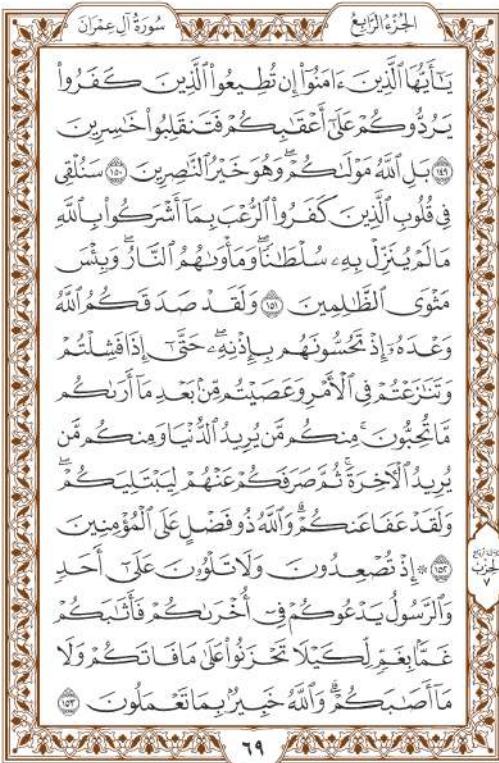 الجُزْءُ الرَّابِعُ
سُورَةُ آلِ عِمْرَانَ
يَـٰٓأَيُّهَا ٱلَّذِينَ ءَامَنُوٓا۟ إِن تُطِيعُوا۟ ٱلَّذِينَ كَفَرُوا۟
يَرُدُّوكُمْ عَلَىٰٓ أَعْقَـٰبِكُمْ فَتَنقَلِبُوا۟ خَـٰسِرِينَ
١٤٩ بَلِ ٱللَّهُ مَوْلَىٰكُمْ ۖ وَهُوَ خَيْرُ ٱلنَّـٰصِرِينَ ١٥٠ سَنُلْقِى
فِى قُلُوبِ ٱلَّذِينَ كَفَرُوا۟ ٱلرُّعْبَ بِمَآ أَشْرَكُوا۟ بِٱللَّهِ
مَا لَمْ يُنَزِّلْ بِهِۦ سُلْطَـٰنًا ۖ وَمَأْوَىٰهُمُ ٱلنَّارُ ۚ وَبِئْسَ
مَثْوَى ٱلظَّـٰلِمِينَ ١٥١ وَلَقَدْ صَدَقَكُمُ ٱللَّهُ
وَعْدَهُۥٓ إِذْ تَحُسُّونَهُم بِإِذْنِهِۦ ۖ حَتَّىٰٓ إِذَا فَشِلْتُمْ
وَتَنَـٰزَعْتُمْ فِى ٱلْأَمْرِ وَعَصَيْتُم مِّنۢ بَعْدِ مَآ أَرَىٰكُم
مَّا تُحِبُّونَ ۚ مِنكُم مَّن يُرِيدُ ٱلدُّنْيَا وَمِنكُم مَّن
يُرِيدُ ٱلْـَٔاخِرَةَ ۚ ثُمَّ صَرَفَكُمْ عَنْهُمْ لِيَبْتَلِيَكُمْ ۖ
وَلَقَدْ عَفَا عَنكُمْ ۗ وَٱللَّهُ ذُو فَضْلٍ عَلَى ٱلْمُؤْمِنِينَ
١٥٢ ۞ إِذْ تُصْعِدُونَ وَلَا تَلْوُۥنَ عَلَىٰٓ أَحَدٍ
وَٱلرَّسُولُ يَدْعُوكُمْ فِىٓ أُخْرَىٰكُمْ فَأَثَـٰبَكُمْ
غَمًّۢا بِغَمٍّ لِّكَيْلَا تَحْزَنُوا۟ عَلَىٰ مَا فَاتَكُمْ وَلَا
مَآ أَصَـٰبَكُمْ ۗ وَٱللَّهُ خَبِيرٌۢ بِمَا تَعْمَلُونَ ١٥٣
الحِزْبُ
٧
٦٩